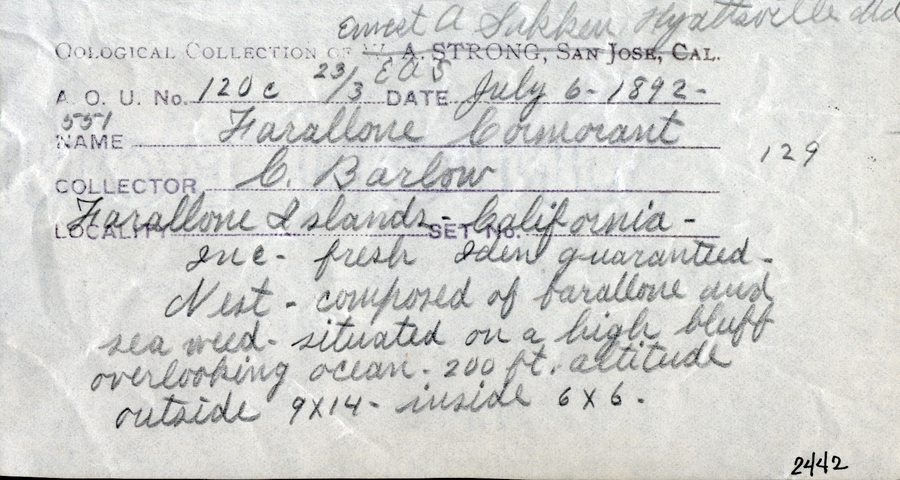 Ernest A Hyattsville Md
OOLOGICAL COLLECTION OF W. A. STRONG, SAN JOSE, CAL.
E A S
A. O. U. No. 120c 23/3 DATE July 6-1892-
551
NAME Farallone Cormorant
129
COLLECTOR C. Barlow
LOCALITY Farallone Islands- SET No. California-
Inc- fresh Iden guaranteed-
Nest- composed of farallone and
sea weed- situated on a high bluff
overlooking ocean- 200 ft. altitude
outside 9x14- inside 6x6.
2442